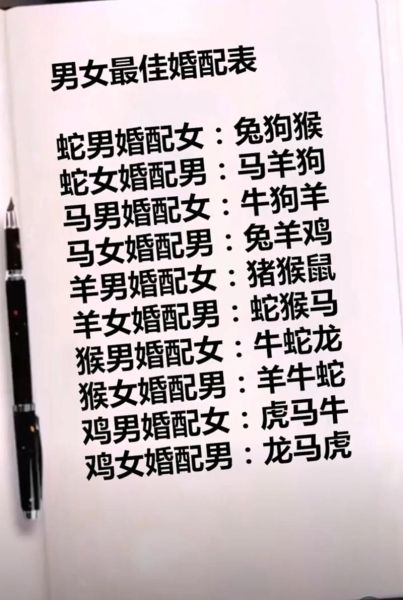 男女最佳婚配表
蛇男婚配女：兔狗猴
蛇女婚配男：马羊狗
马男婚配女：牛狗羊
马女婚配男：兔羊鸡
羊男婚配女：猪猴鼠
羊女婚配男：蛇猴马
猴男婚配女：牛蛇龙
猴女婚配男：羊牛蛇
鸡男婚配女：虎马牛
鸡女婚配男：龙马虎